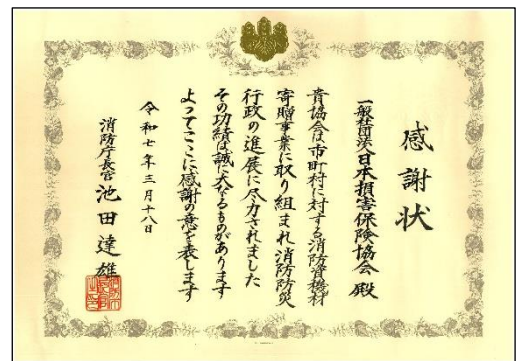 感謝状
一般社団法人日本損害保険協会 殿
貴協会は市町村に対する消防資機材
寄贈事業に取り組まれ消防防災
行政の進展に尽力されました
その功績は誠に大なるものがあります
よってここに感謝の意を表します
令和七年三月十八日
消防庁長官 池田達雄